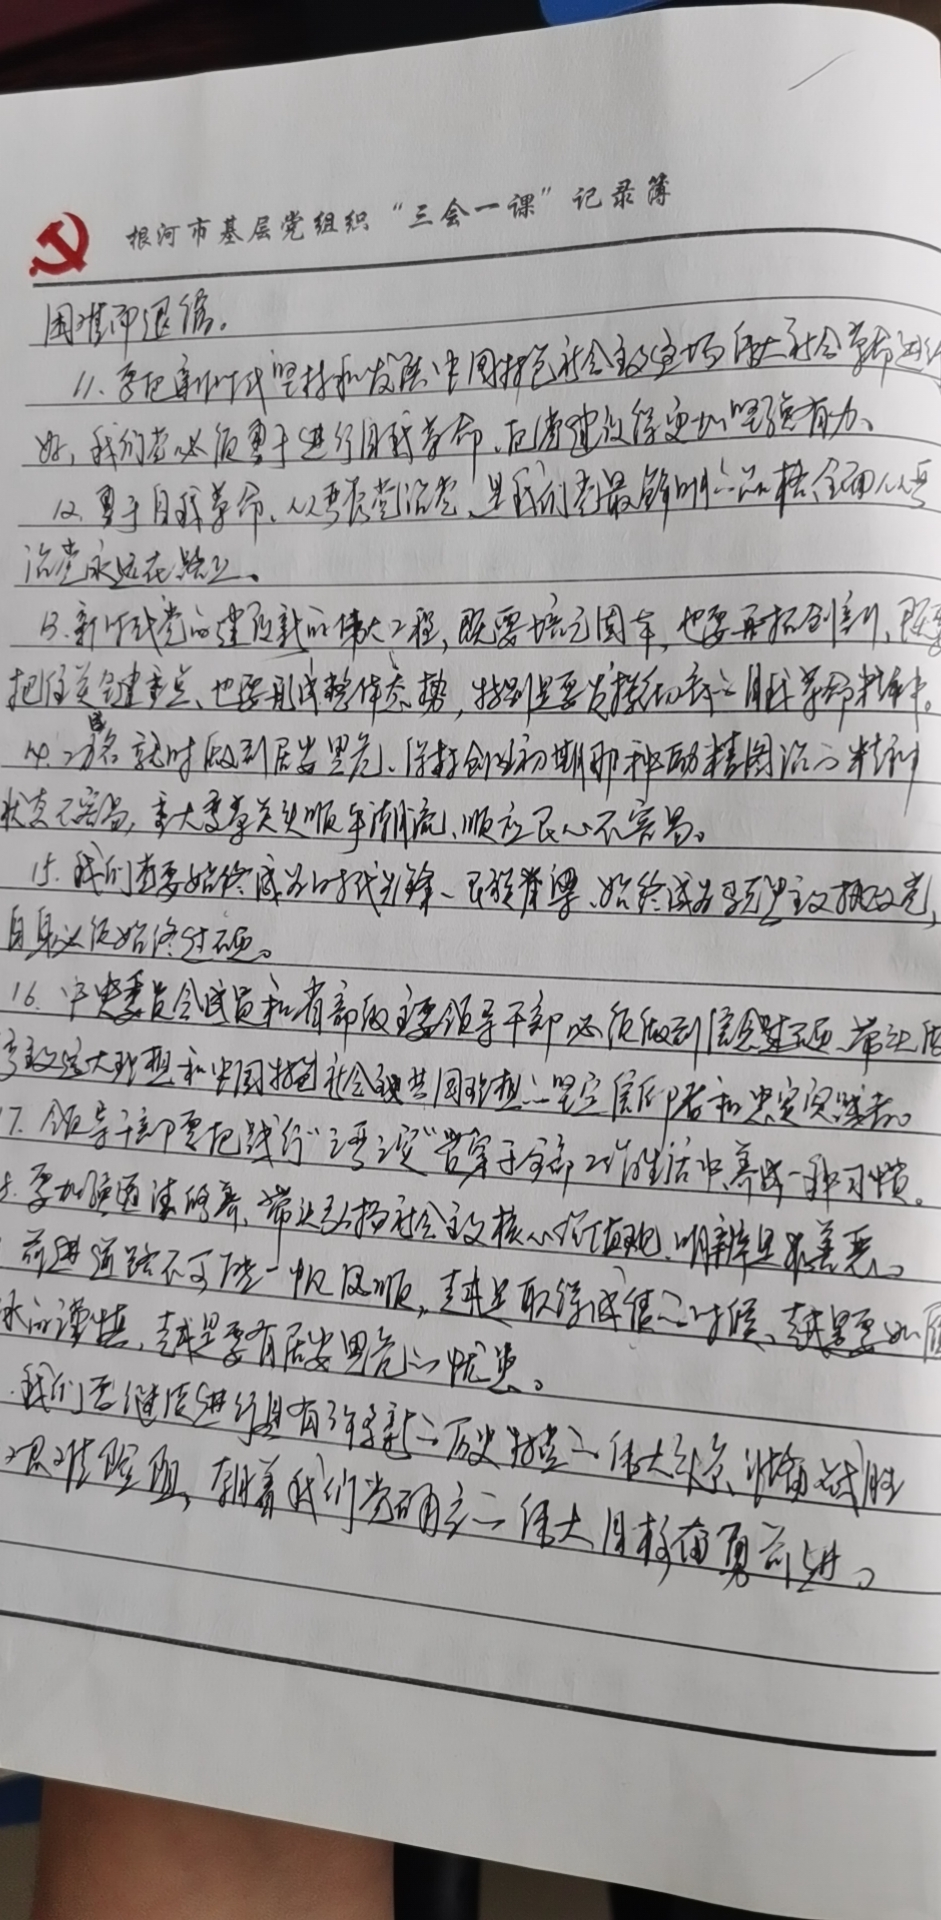 根河市基层党组织“三会一课”记录簿
困难而退缩。
11. 要把新时代坚持和发展中国特色社会主义这场伟大社会革命进行
好,我们党必须勇于进行自我革命,把党建设得更加坚强有力。
12. 勇于自我革命,从严管党治党,是我们党最鲜明的品格全面从严
治党永远在路上。
13. 新时代党的建设新的伟大工程,既要培元固本,也要开拓创新,既要
把住关键重点、也要形成整体态势,特别是要发挥彻底的自我革命精神。
14. 功成名就时做到居安思危、保持创业初期那种励精图治的精神
状态不容易,重大变革关头顺乎潮流、顺应民心不容易。
15. 我们党要始终成为时代先锋、民族脊梁、始终成为马克思主义执政党,
自身必须始终过硬。
16. 中央委员会成员和省部级主要领导干部必须做到信念过硬、带头做
主义远大理想和中国特色社会主义共同理想的坚定信仰者和忠实实践者。
7. 领导干部要把践行“三严三实”贯穿于全部工作生活中,养成一种习惯。
要加强道德修养、带头弘扬社会主义核心价值观、明辨是非善恶。
前进道路不可能一帆风顺,越是取得成绩的时候、越是要如履
冰的谨慎、越是要有居安思危的忧患。
我们要继续进行具有许多新的历史特点的伟大斗争、准备战胜
艰难险阻,朝着我们党确立的伟大目标奋勇前进。